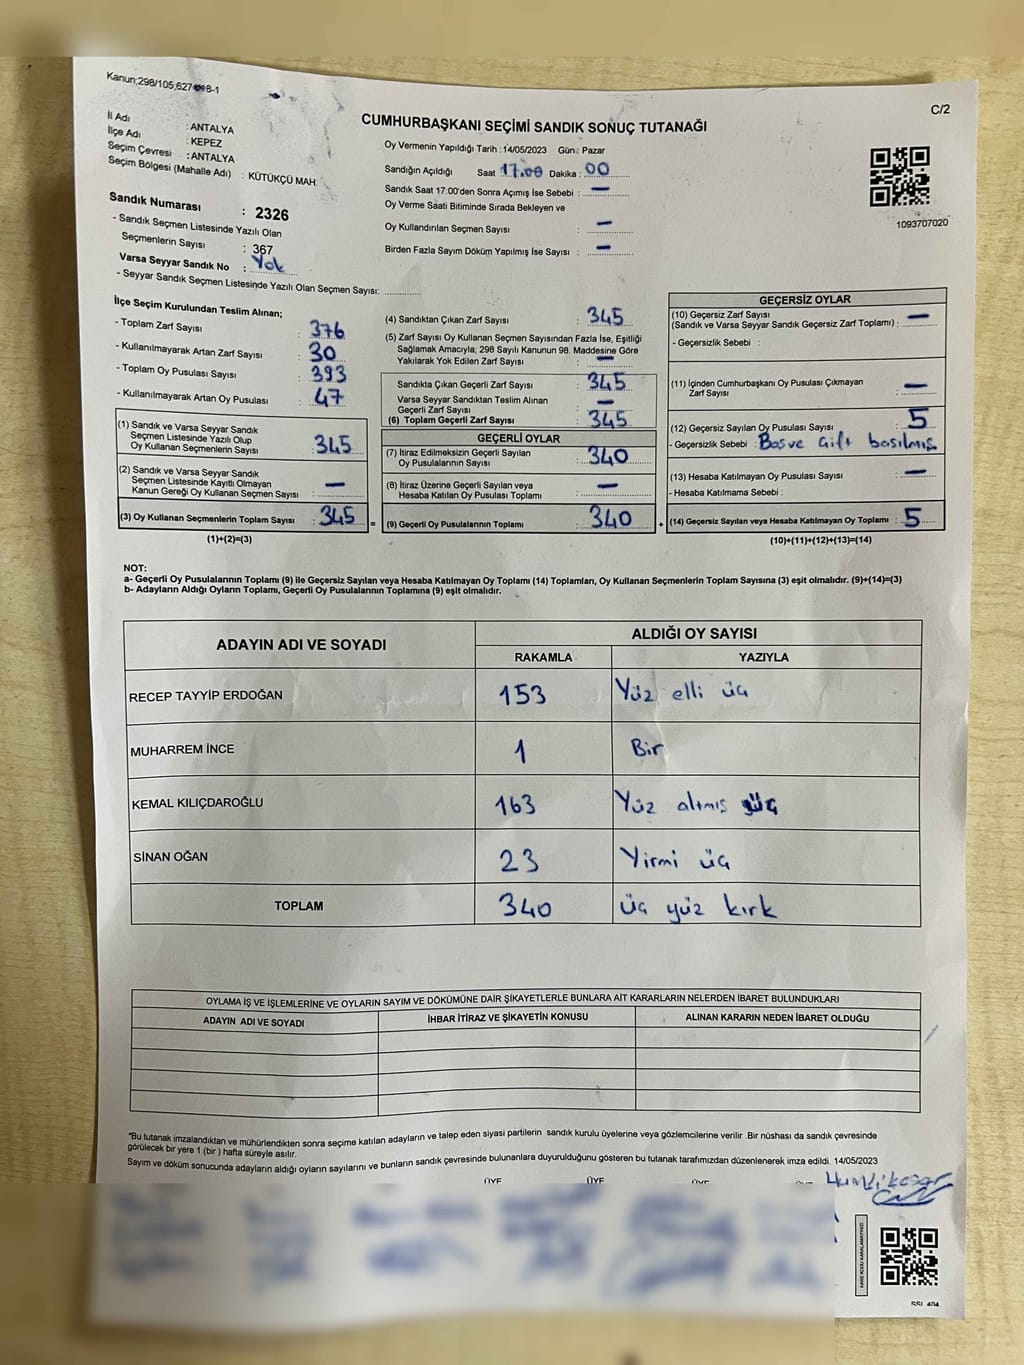 Kanun:298/105,627
C/2
CUMHURBAŞKANI SEÇİMİ SANDIK SONUÇ TUTANAĞI
İl Adı : ANTALYA
İlçe Adı : KEPEZ
Seçim Çevresi : ANTALYA
Seçim Bölgesi (Mahalle Adı) : KÜTÜKÇÜ MAH.
Sandık Numarası : 2326
- Sandık Seçmen Listesinde Yazılı Olan
Seçmenlerin Sayısı : 367
Varsa Seyyar Sandık No : Yok
- Seyyar Sandık Seçmen Listesinde Yazılı Olan Seçmen Sayısı:
Oy Vermenin Yapıldığı Tarih :14/05/2023 Gün : Pazar
Sandığın Açıldığı Saat 17.00 Dakika : 00
Sandık Saat 17:00'den Sonra Açımış İse Sebebi : —
Oy Verme Saati Bitiminde Sırada Bekleyen ve
Oy Kullandırılan Seçmen Sayısı : —
Birden Fazla Sayım Döküm Yapılmış İse Sayısı : —
1093707020
İlçe Seçim Kurulundan Teslim Alınan;
- Toplam Zarf Sayısı : 376
- Kullanılmayarak Artan Zarf Sayısı : 30
- Toplam Oy Pusulası Sayısı : 393
- Kullanılmayarak Artan Oy Pusulası : 47
(1) Sandık ve Varsa Seyyar Sandık
Seçmen Listesinde Yazılı Olup
Oy Kullanan Seçmenlerin Sayısı : 345
(2) Sandık ve Varsa Seyyar Sandık
Seçmen Listesinde Kayıtlı Olmayan
Kanun Gereği Oy Kullanan Seçmen Sayısı : —
(3) Oy Kullanan Seçmenlerin Toplam Sayısı : 345 =
(1)+(2)=(3)
(4) Sandıktan Çıkan Zarf Sayısı : 345
(5) Zarf Sayısı Oy Kullanan Seçmen Sayısından Fazla İse, Eşitliği
Sağlamak Amacıyla; 298 Sayılı Kanunun 98. Maddesine Göre
Yakılarak Yok Edilen Zarf Sayısı : —
Sandıkta Çıkan Geçerli Zarf Sayısı : 345
Varsa Seyyar Sandıktan Teslim Alınan
Geçerli Zarf Sayısı : —
(6) Toplam Geçerli Zarf Sayısı : 345
GEÇERLİ OYLAR
(7) İtiraz Edilmeksizin Geçerli Sayılan
Oy Pusulalarının Sayısı : 340
(8) İtiraz Üzerine Geçerli Sayılan veya
Hesaba Katılan Oy Pusulası Toplamı : —
(9) Geçerli Oy Pusulalarının Toplamı : 340 +
GEÇERSİZ OYLAR
(10) Geçersiz Zarf Sayısı
(Sandık ve Varsa Seyyar Sandık Geçersiz Zarf Toplamı) : —
- Geçersizlik Sebebi :
(11) İçinden Cumhurbaşkanı Oy Pusulası Çıkmayan
Zarf Sayısı : —
(12) Geçersiz Sayılan Oy Pusulası Sayısı : 5
- Geçersizlik Sebebi : Boş ve Çift basılmış
(13) Hesaba Katılmayan Oy Pusulası Sayısı : —
- Hesaba Katılmama Sebebi :
(14) Geçersiz Sayılan veya Hesaba Katılmayan Oy Toplamı : 5
(10)+(11)+(12)+(13)=(14)
NOT:
a- Geçerli Oy Pusulalarının Toplamı (9) ile Geçersiz Sayılan veya Hesaba Katılmayan Oy Toplamı (14) Toplamları, Oy Kullanan Seçmenlerin Toplam Sayısına (3) eşit olmalıdır. (9)+(14)=(3)
b- Adayların Aldığı Oyların Toplamı, Geçerli Oy Pusulalarının Toplamına (9) eşit olmalıdır.
ADAYIN ADI VE SOYADI ALDIĞI OY SAYISI
RAKAMLA YAZIYLA
RECEP TAYYİP ERDOĞAN 153 Yüz elli üç
MUHARREM İNCE 1 Bir
KEMAL KILIÇDAROĞLU 163 Yüz altmış üç
SİNAN OĞAN 23 Yirmi üç
TOPLAM 340 üç yüz kırk
OYLAMA İŞ VE İŞLEMLERİNE VE OYLARIN SAYIM VE DÖKÜMÜNE DAİR ŞİKAYETLERLE BUNLARA AİT KARARLARIN NELERDEN İBARET BULUNDUKLARI
ADAYIN ADI VE SOYADI İHBAR İTİRAZ VE ŞİKAYETİN KONUSU ALINAN KARARIN NEDEN İBARET OLDUĞU
*Bu tutanak imzalandıktan ve mühürlendikten sonra seçime katılan adayların ve talep eden siyasi partilerin sandık kurulu üyelerine veya gözlemcilerine verilir .Bir nüshası da sandık çevresinde
görülecek bir yere 1 (bir ) hafta süreyle asılır.
Sayım ve döküm sonucunda adayların aldığı oyların sayılarını ve bunların sandık çevresinde bulunanlara duyurulduğunu gösteren bu tutanak tarafımızdan düzenlenerek imza edildi. 14/05/2023
ÜYE ÜYE ÜYE
KARE KODU KARALAMAYINIZ!